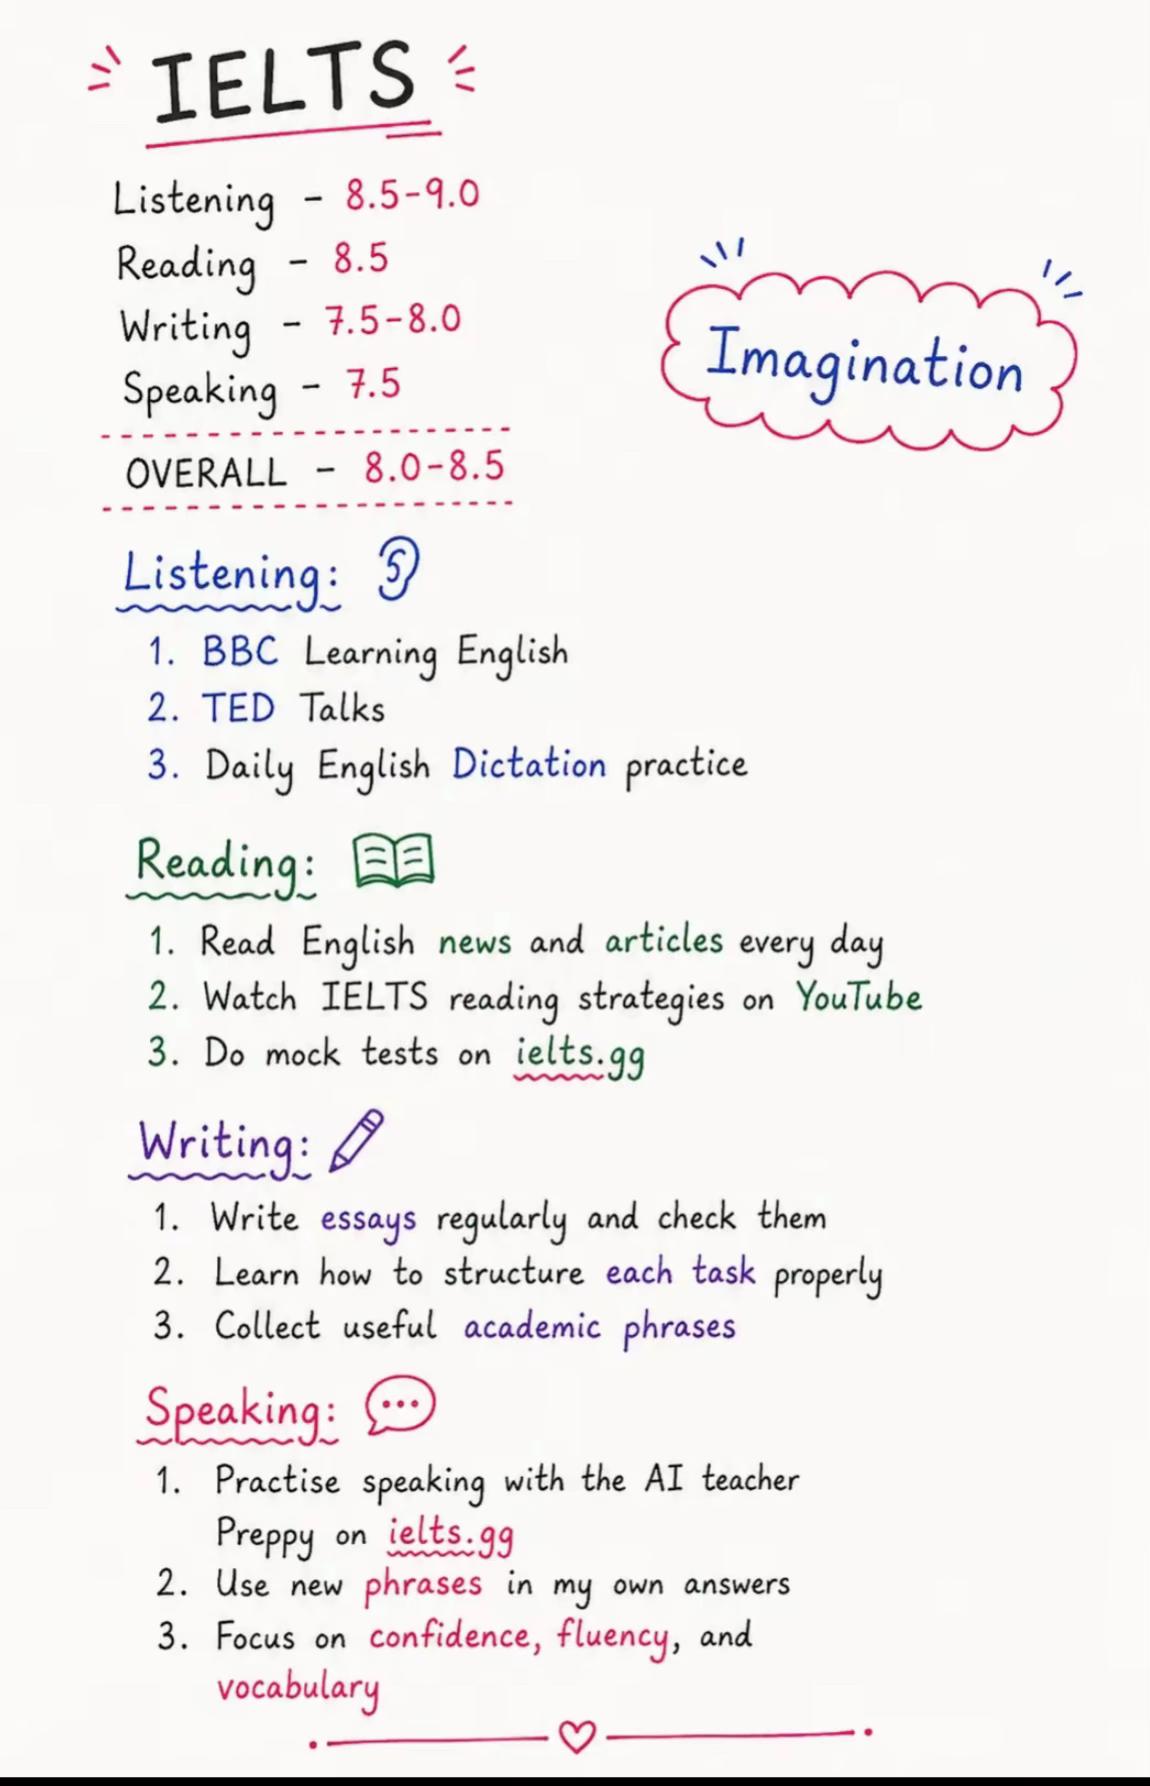 IELTS
Listening - 8.5-9.0
Reading - 8.5
Writing - 7.5-8.0
Speaking - 7.5
OVERALL - 8.0-8.5
Imagination
Listening:
1. BBC Learning English
2. TED Talks
3. Daily English Dictation practice
Reading:
1. Read English news and articles every day
2. Watch IELTS reading strategies on YouTube
3. Do mock tests on ielts.gg
Writing:
1. Write essays regularly and check them
2. Learn how to structure each task properly
3. Collect useful academic phrases
Speaking:
1. Practise speaking with the AI teacher
Preppy on ielts.gg
2. Use new phrases in my own answers
3. Focus on confidence, fluency, and
vocabulary